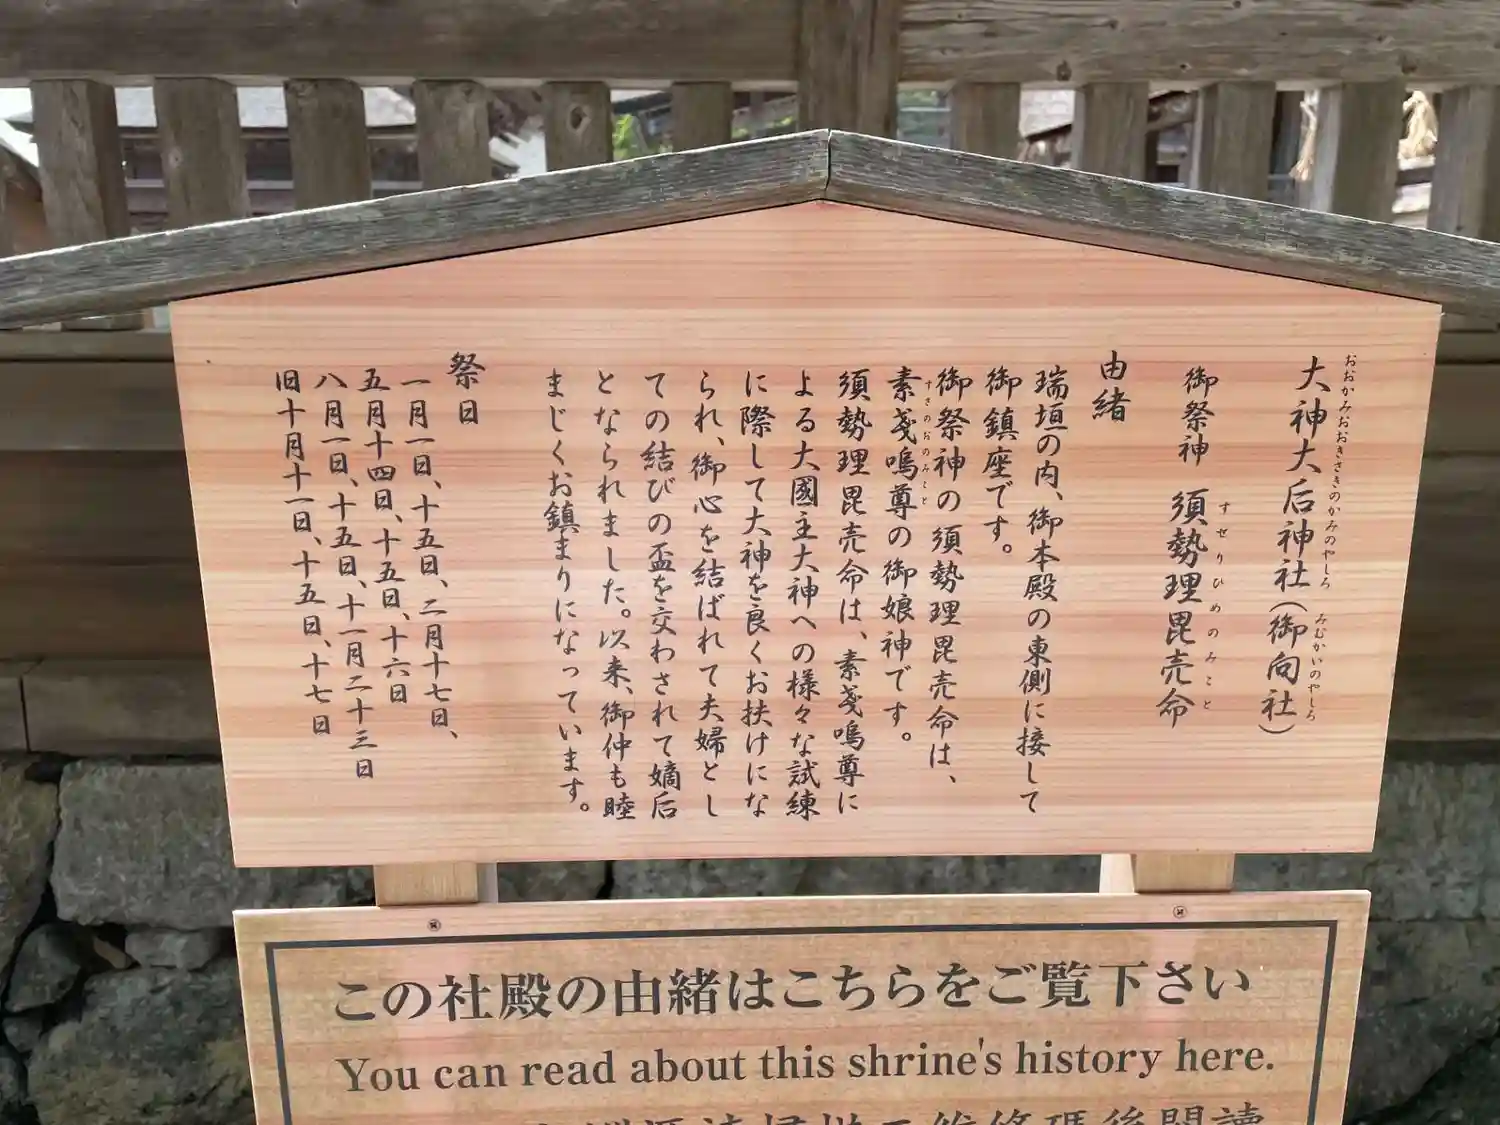 大神大后神社(御向社)
おおかみおおきさきのかみのやしろ みむかいのやしろ
御祭神 須勢理毘売命
すせりひめのみこと
由緒
瑞垣の内、御本殿の東側に接して
御鎮座です。
御祭神の須勢理毘売命は、
素戔嗚尊の御娘神です。
すさのおのみこと
須勢理毘売命は、素戔嗚尊に
よる大國主大神への様々な試練
に際して大神を良くお扶けにな
られ、御心を結ばれて夫婦とし
ての結びの盃を交わされて嫡后
となられました。以来、御仲も睦
まじくお鎮まりになっています。
祭日
一月一日、十五日、二月十七日、
五月十四日、十五日、十六日
八月一日、十五日、十一月二十三日
旧十月十一日、十五日、十七日
この社殿の由緒はこちらをご覧下さい
You can read about this shrine's history here.